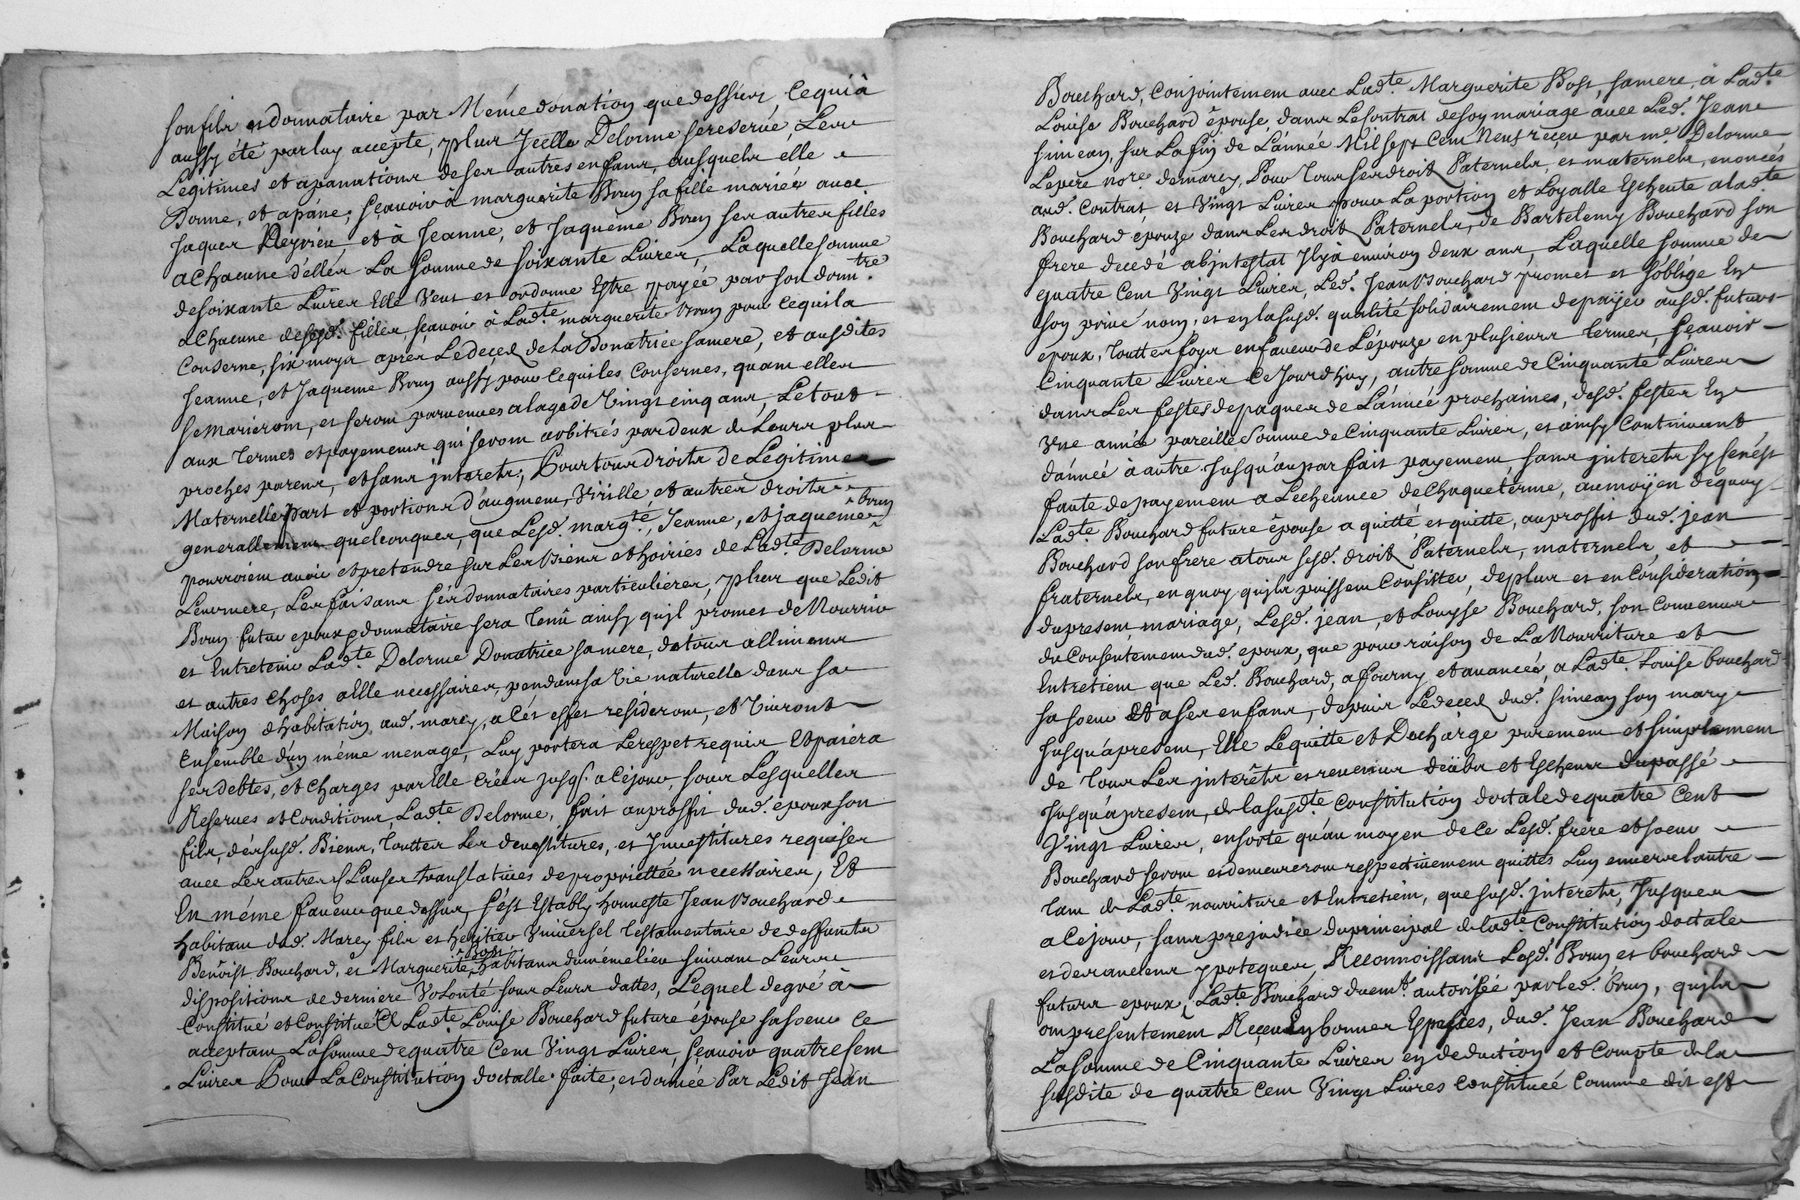 son fils et donnataire par Méme donation que dessus, Ce qui à
aussy été par luy accepté, plus Jcelle Delorme se reserve, Leur
Legitimes et apanations de ses autres enfans, ausquels elle
Donne, et apâne, sçavoir à marguerite Brun sa fille mariée avec
Jaques Neyrieu, et à Jeanne, et Jaquême Brun ses autres filles
a Chacune d'elles La somme de soixante Livres, Laquelle somme
de soixante Livres Elle Veut et ordonne Estre payée par son donn.tre
a Chacune desd. filles, sçavoir à Lad.te marguerite Brun pour ce qui la
Conserne, six moys apres Le deced de la Donatrice sa mere, et ausdites
Jeanne, et Jaqueme Brun aussy pour ce qui les Consernes, quant elles
se marieront, et seront parvenues a lage de Vingt cinq ans, Le tout
aux termes et payements qui seront arbitrés par deux de Leurs plus
proches parens, et sans interets, Pour tous droits de Legitimes
Maternelle part et portions d'augment, Virille et autres droits
generallement quelconques, que Lesd. marg.te, Jeanne, et jaqueme brun
pourroient avoir et pretendre sur Les Biens et hoiries de Lad.te Delorme
Leur mere, Les faisans ses donnataires particulieres, plus que Ledit
Brun futur epoux donnataire sera tenû ainsy qu'il promet de Nourrir
et Entretenir Lad.te Delorme Donatrice sa mere, de tous alliments
et autres choses a Elle necessaires, pendant sa Vie naturelle dans sa
Maison d'habitation aud. marcy, a Cét effet résideront, et Vivront
Ensemble d'un méme menage, Luy portera Le respet requis Et paiera
ses debtes, et Charges par Elle Créés jusq. a Cé jour, sous Lesquelles
Reserves et Conditions, Lad.te Delorme, fait au proffit dud. epoux son
fils, dés susd. Biens, touttes Les devestitures, et Jnvestitures requises
avec Les autres Clauses translatives de proprietée necessaires, Et
En méme faveur que dessus, s'ést Estably honneste Jean Bouchard
habitant dud. Marcy fils et heritier Universel testamentaire de deffunts
Benoist Bouchard, et Marguerite Bost, habitans du méme lieu suivant Leurs
dispositions de derniere Volonté sous Leurs dattes, Lequel de gré à
Constitué et Constitue A Lad.te Louise Bouchard future épouse sa soeur ce
acceptant La somme de quatre Cent Vingt Livres, sçavoir quatre sent
Livres Pour La Constitution doctalle faite, et donnée Par Ledit Jean
Bouchard, Conjointement avec Lad.te Marguerite Bost, sa mere, à Lad.te
Louise Bouchard épouse, dans Le Contrat de son mariage avec Led. Jean
simean, sur La fin de L'année Mil sept Cent Neuf reçu par me. Delorme
Le pere no.re de marcy, Pour tous ses droits Paternels, et maternels, enoncés
aud. Contrat et Vingt Livres pour La portion et Loyalle Escheute a lad.te
Bouchard epouze dans Les droits Paternels, de Bartelemy Bouchard son
frere decedé abjntestat Jlyà environ deux ans, Laquelle somme de
quatre Cent Vingt Livres, Led. Jean Bouchard promet et s'oblige En
son privé nom, et en la susd. qualité solidairement de payer ausd. futurs
epoux, touttesfoys en faveur de L'épouze en plusieurs termes, sçavoir
Cinquante Livres Ce Jourdhuy, autre somme de Cinquante Livres
dans Les festes de paques de L'année prochaines, desd. festes En
Une année pareille somme de Cinquante Livres, et ainsy Continuant
d'année à autre Jusqu'au parfait payement, sans interets sy Cen'ést
faute de payement a L'echeance de Chaque terme, au moyen dequoy
Lad.te Bouchard future épouse a quitté et quitte, au proffit dud. jean
Bouchard son frere a tous sesd. droits Paternels, maternels et
fraternels, en quoy qu'ils puissent Consister, de plus et en Consideration
du present mariage, Lesd. jean, et Louyse Bouchard, son Convenus
du Consentement dud. epoux, que pour raison de La Nourriture et
Entretient que Led. Bouchard, a fourny, et avancéé, a Lad.te Louise bouchard
sa soeur Et a ses enfans, depuis Le deced dud. simean son mary
Jusqu'à present, Elle Le quitte et Decharge purement et simplement
de tous Les interêts et revenus deübs et Escheus du passé
Jusqu'à present, de la susd.te Constitution doctale de quatre Cent
Vingt Livres, en sorte qu'au moyen de ce Lesd. frere et soeur
Bouchard seront et demeureront respectivement quittes L'un envers lautre
tant de Lad.te nourriture et Entretient, que susd. interets, Jusques
a Ce jour, sans prejudice du principal de lad.te Constitution doctale
et des anciens ypoteques, Reconnoissans Lesd. Brun et bouchard
futurs epoux, Lad.te Bouchard duem.t autorisée par led. brun, qu'ils
ont presentement Reçeu En bonnes Especes, dud. Jean Bouchard
La somme de Cinquante Livres en deduction et Compte de la
susdite de quatre Cent Vingt Livres Constituéé Comme dit est